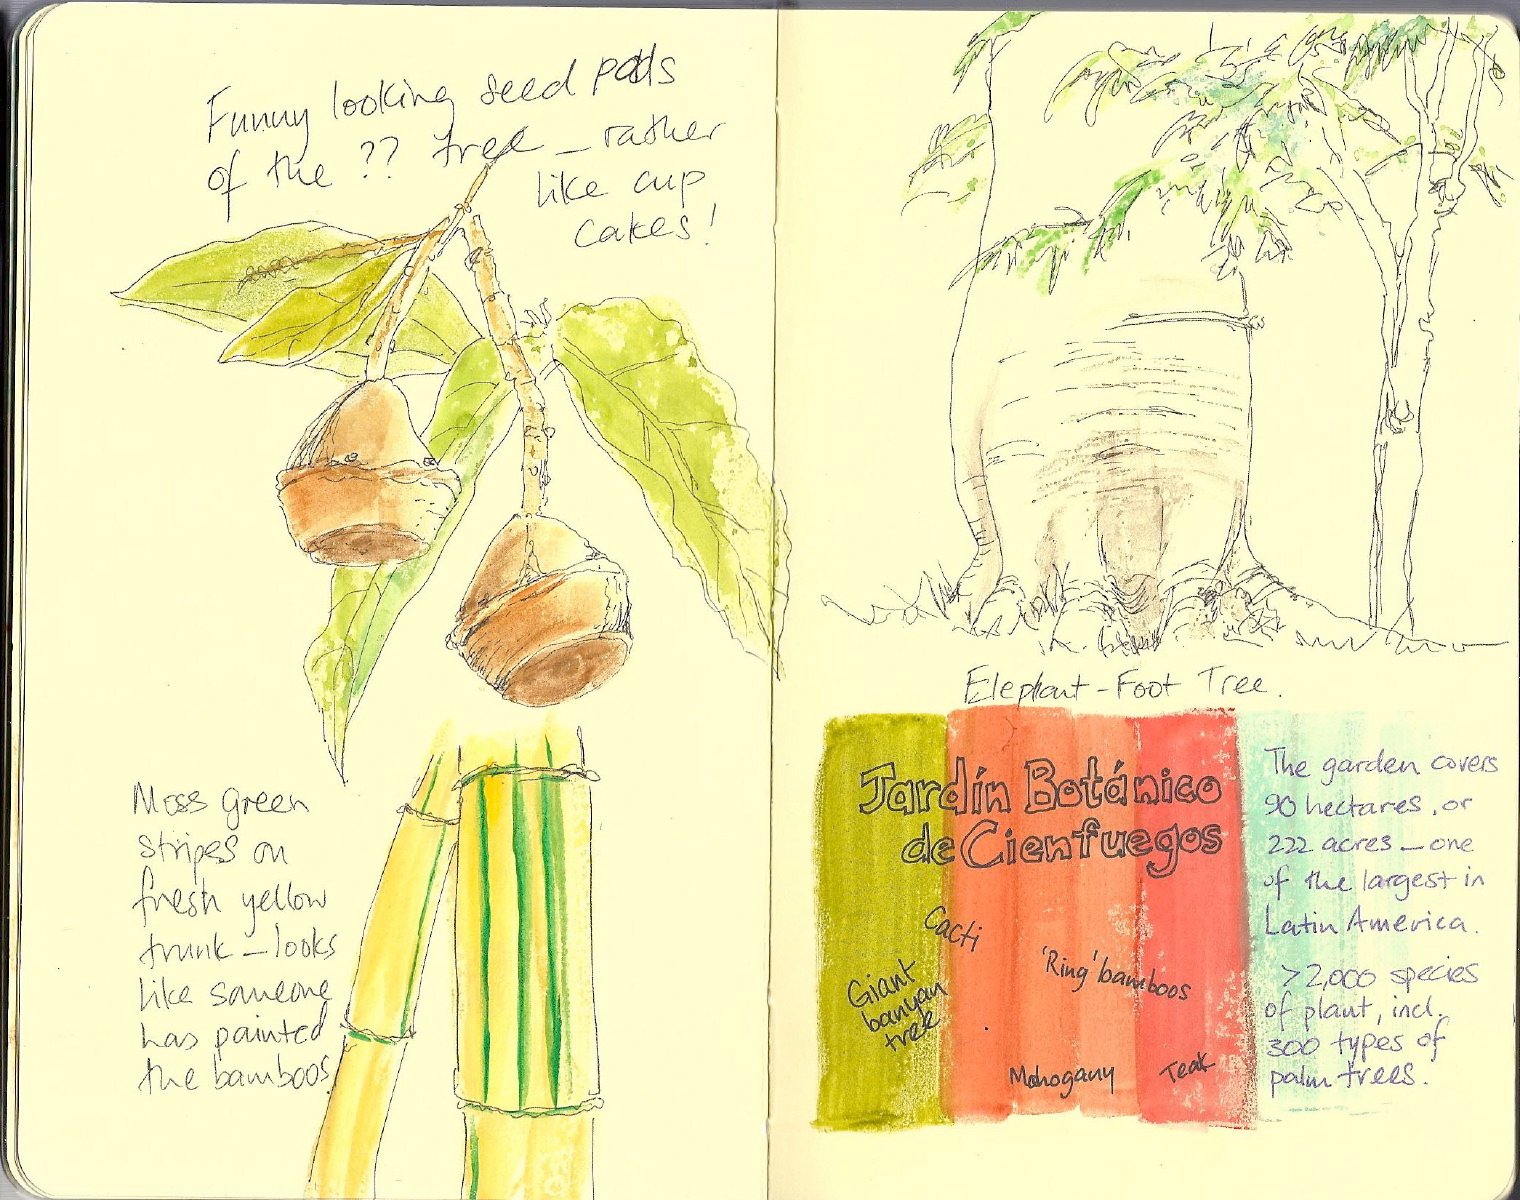 Funny looking seed pods
of the ?? tree – rather
like cup
cakes!
Moss green
stripes on
fresh yellow
trunk – looks
like someone
has painted
the bamboos.
Elephant-Foot Tree.
Jardín Botánico
de Cienfuegos
Cacti
'Ring' bamboos
Giant
banyan
tree
Mahogany
Teak
The garden covers
90 hectares, or
222 acres – one
of the largest in
Latin America.
>2,000 species
of plant, incl.
300 types of
palm trees.